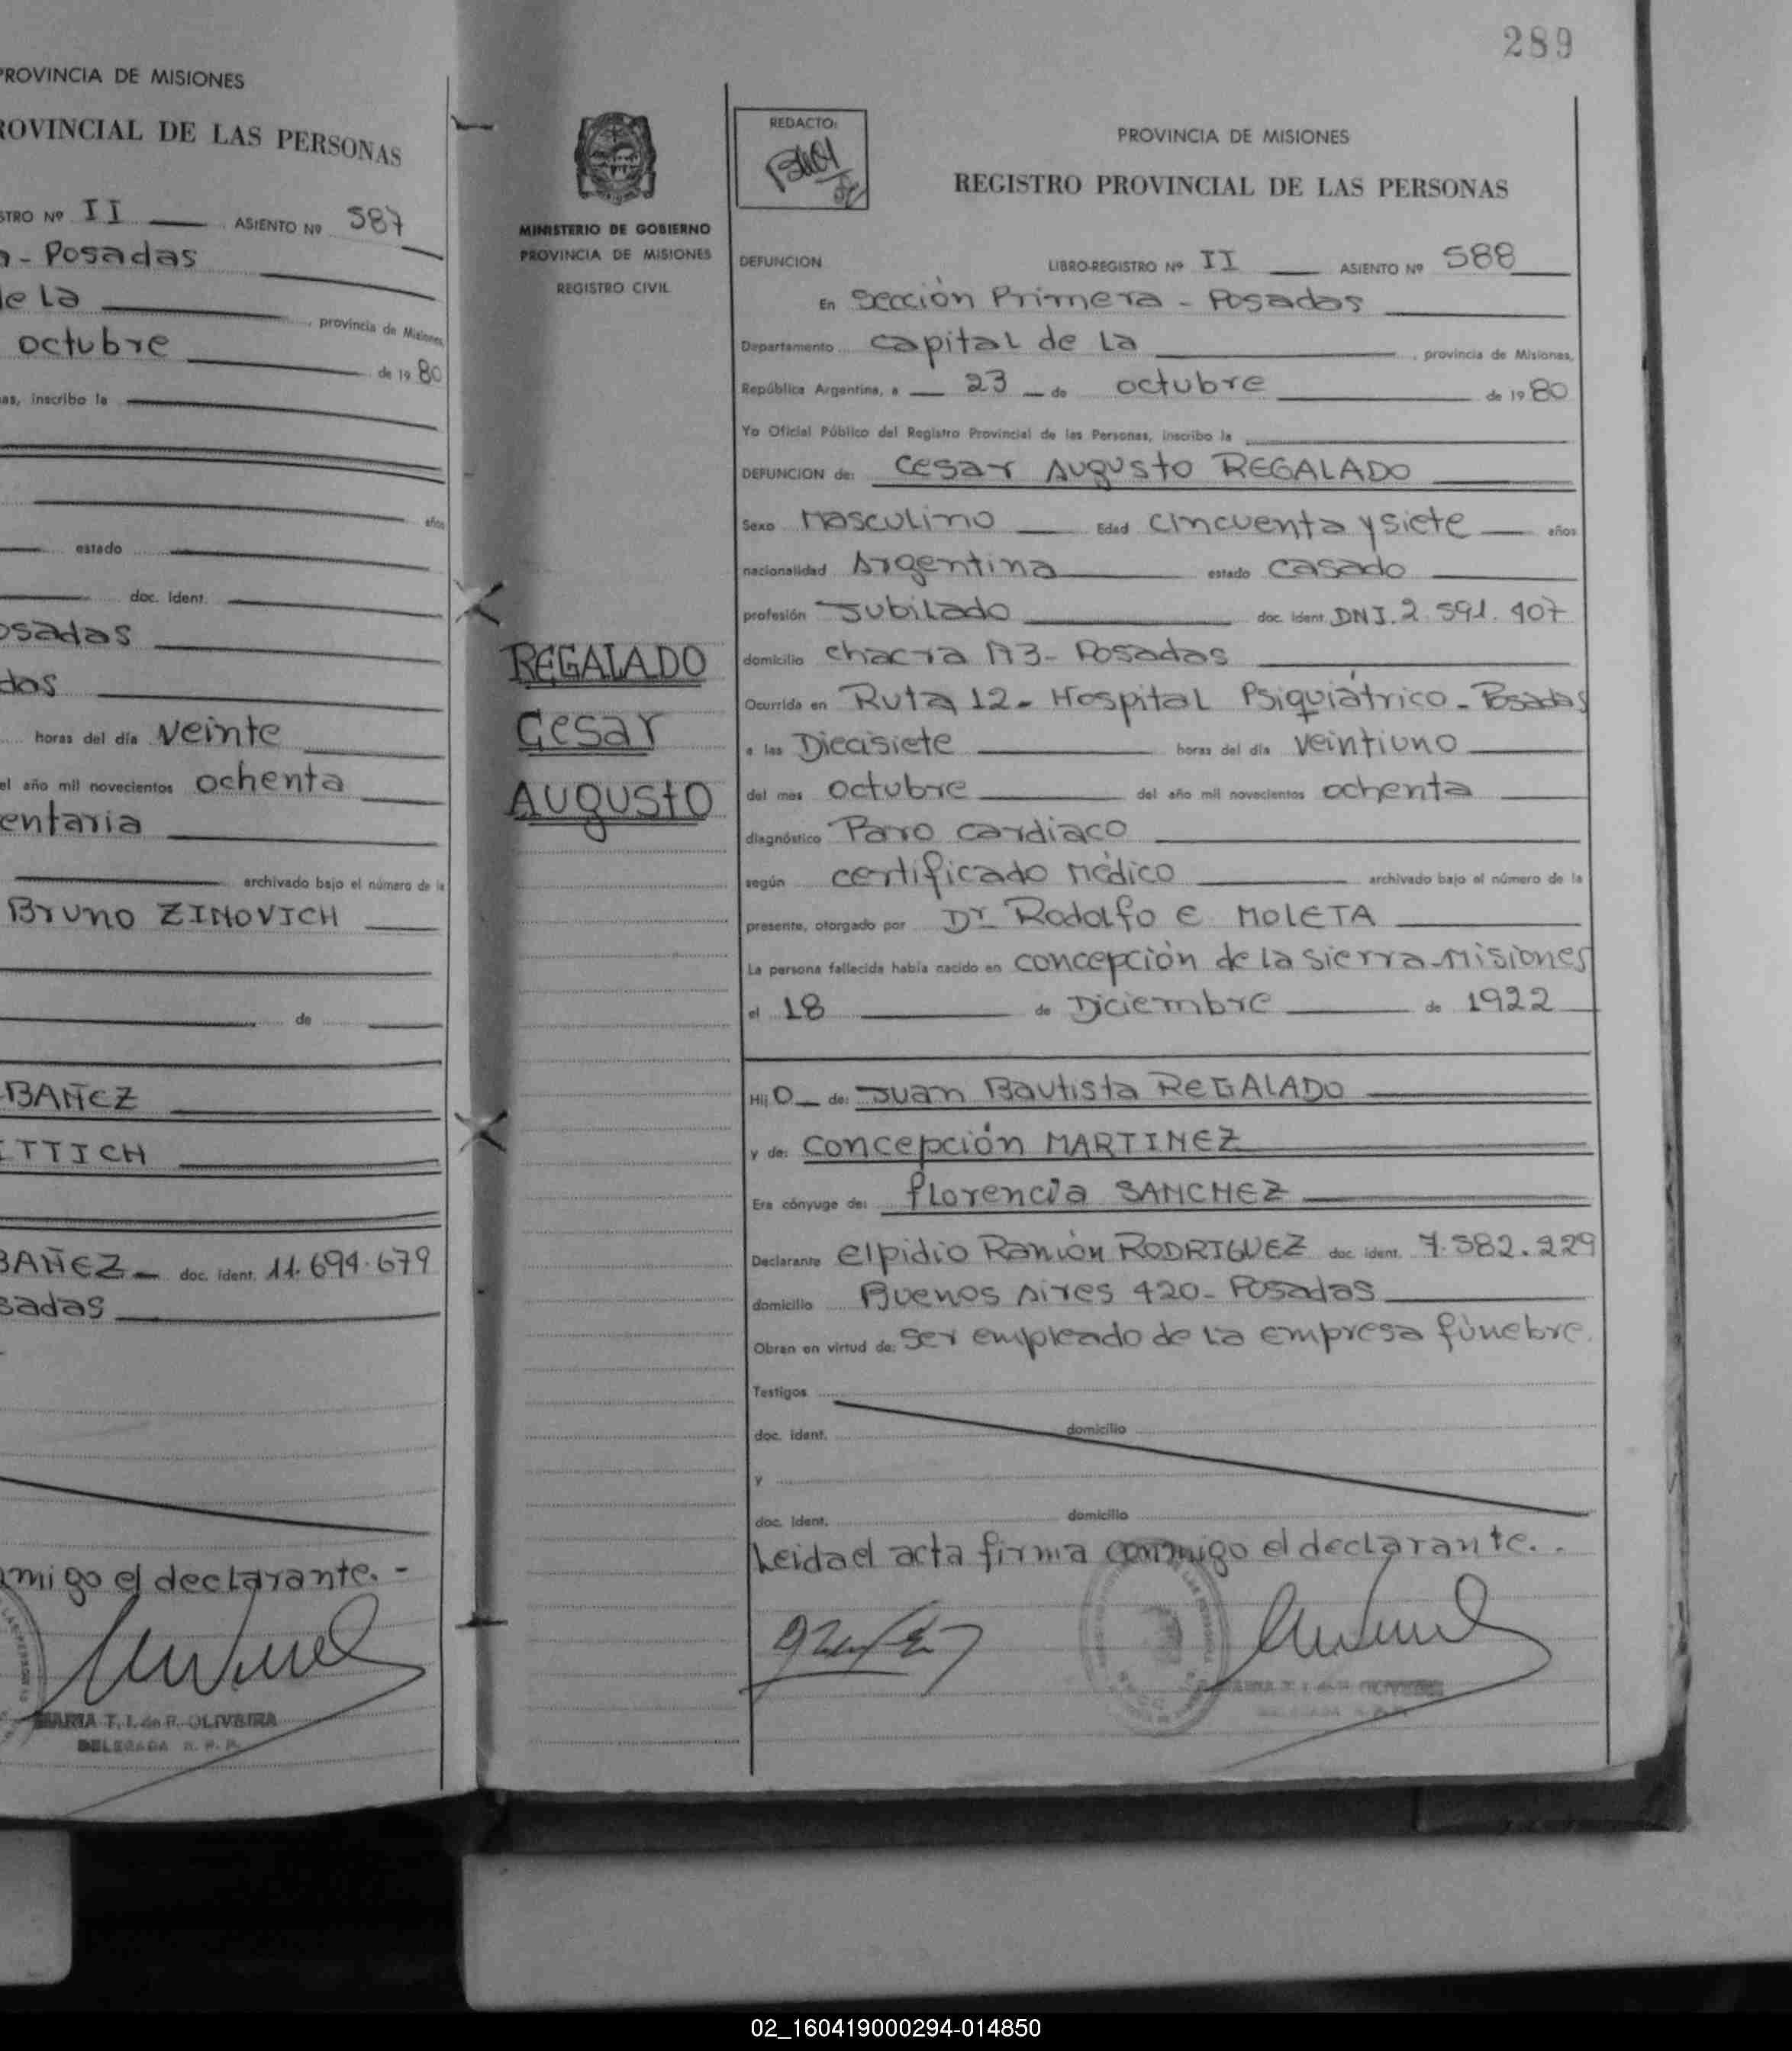 PROVINCIA DE MISIONES
ROVINCIAL DE LAS PERSONAS
STRO Nº II ASIENTO Nº 587
- Posadas
de La
, provincia de Misiones,
octubre de 19 80
as, inscribo la
años
estado
doc. Ident.
osadas
das
horas del día veinte
el año mil novecientos ochenta
entaria
archivado bajo el número de la
Bruno ZINOVICH
de
BAÑEZ
ITTICH
BAÑEZ doc. ident. 11.694.679
sadas
migo el declarante. -
MARIA T. I. de R. OLIVEIRA
DELEGADA R. P. P.
289
MINISTERIO DE GOBIERNO
PROVINCIA DE MISIONES
REGISTRO CIVIL
REGALADO
Cesar
Augusto
REDACTO:
PROVINCIA DE MISIONES
REGISTRO PROVINCIAL DE LAS PERSONAS
DEFUNCION LIBRO-REGISTRO Nº II ASIENTO Nº 588
En Sección Primera - Posadas
Departamento capital de La , provincia de Misiones,
República Argentina, a 23 de octubre de 19 80
Yo Oficial Público del Registro Provincial de las Personas, inscribo la
DEFUNCION de: Cesar Augusto REGALADO
Sexo Masculino Edad cincuenta y siete años
nacionalidad Argentina estado casado
profesión Jubilado doc. ident. DNI. 2.591.407
domicilio chacra 173 - Posadas
Ocurrida en Ruta 12 - Hospital Psiquiátrico - Posadas
a las Diecisiete horas del día veintiuno
del mes octubre del año mil novecientos ochenta
diagnóstico Paro cardiaco
según certificado médico archivado bajo el número de la
presente, otorgado por Dr Rodolfo E MOLETA
La persona fallecida había nacido en concepción de la sierra - Misiones
el 18 de Diciembre de 1922
Hij o de: Juan Bautista REGALADO
y de: concepción MARTINEZ
Era cónyuge de: florencia SANCHEZ
Declarante Elpidio Ramón RODRIGUEZ doc. ident. 7.582.229
domicilio Buenos Aires 420 - Posadas
Obran en virtud de: Ser empleado de la empresa fúnebre.
Testigos
doc. ident. domicilio
y
doc. ident. domicilio
Leida el acta firma conmigo el declarante. -
02_160419000294-014850